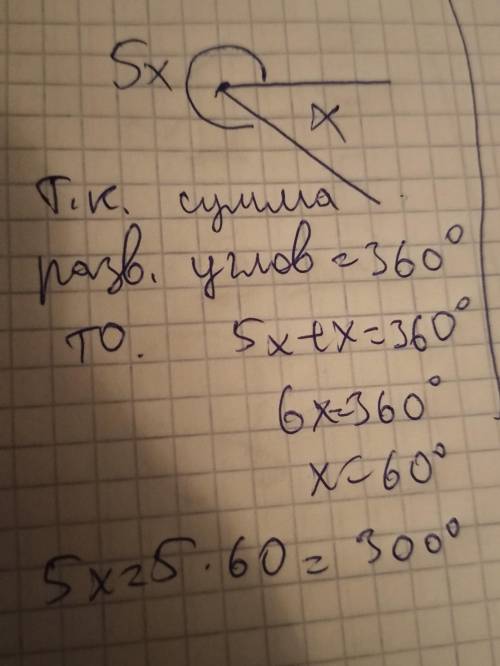 5x
x
Т.к. сумма
разв. углов = 360°
то. 5x+x=360°
6x=360°
x=60°
5x=5·60=300°